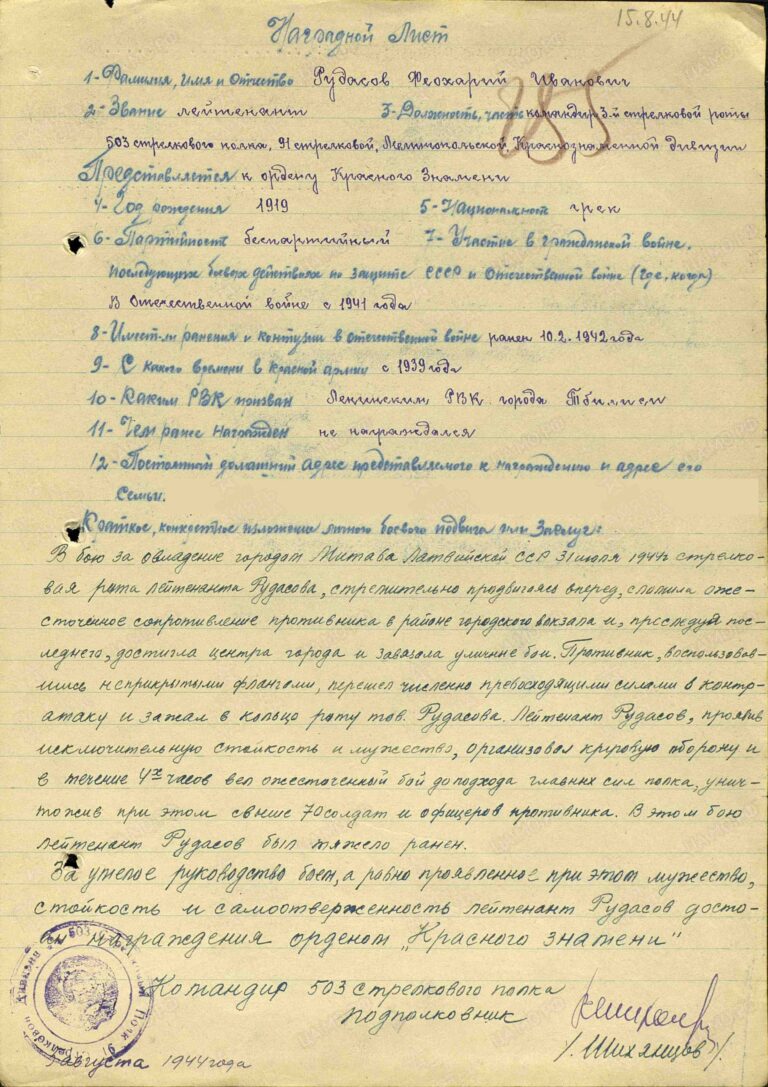 15.8.44
Наградной Лист
285
1- Фамилия, Имя и Отчество Рудасов Феохарий Иванович
2- Звание лейтенант 3- Должность, часть командир 3-й стрелковой роты
503 стрелкового полка, 91 стрелковой, Мелитопольской, Краснознаменной дивизии
Представляется к ордену Красного Знамени
4- Год рождения 1919 5- Национальность грек
6- Партийность беспартийный 7- Участие в гражданской войне,
последующих боевых действиях по защите СССР и Отечественной войне (где, когда)
В Отечественной войне с 1941 года
8- Имеет ли ранения и контузии в отечественной войне ранен 10.2.1942 года
9- С какого времени в красной армии с 1939 года
10- Каким РВК призван Ленинским РВК города Тбилиси
11- Чем ранее награжден не награждался
12- Постоянный домашний адрес представляемого к награждению и адрес его
семьи.
Краткое, конкретное изложение личного боевого подвига или заслуг:
В бою за овладение городом Митава Латвийской ССР 31 июля 1944г стрелко-
вая рота лейтенанта Рудасова, стремительно продвигаясь вперед, сломила оже-
сточенное сопротивление противника в районе городского вокзала и, преследуя пос-
леднего, достигла центра города и завязала уличные бои. Противник, воспользовав-
шись неприкрытыми флангами, перешел численно превосходящими силами в контр-
атаку и зажал в кольцо роту тов. Рудасова. Лейтенант Рудасов, проявив
исключительную стойкость и мужество, организовал круговую оборону и
в течение 4х часов вел ожесточенный бой до подхода главных сил полка, унич-
тожив при этом свыше 70 солдат и офицеров противника. В этом бою
лейтенант Рудасов был тяжело ранен.
За умелое руководство боем, а равно проявленное при этом мужество,
стойкость и самоотверженность лейтенант Рудасов досто-
ин награждения орденом „Красного знамени"
Командир 503 стрелкового полка
подполковник
/Шихянцов/.
августа 1944 года
503
Полк 91 стрелковой дивизии